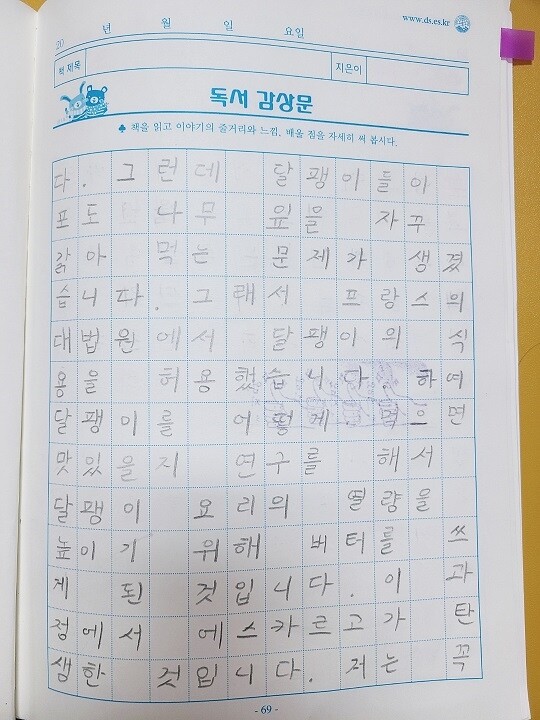 www.ds.es.kr
20 년 월 일 요일
책 제목 지은이
독서 감상문
♣ 책을 읽고 이야기의 줄거리와 느낌, 배울 점을 자세히 써 봅시다.
다. 그런데 달팽이들이
포도 나무 잎을 자꾸
갉아 먹는 문제가 생겼
습니다. 그래서 프랑스의
대법원에서 달팽이의 식
용을 허용했습니다. 하여
달팽이를 어떻게 먹으면
맛있을지 연구를 해서
달팽이 요리의 열량을
높이기 위해 버터를 쓰
게 된 것입니다. 이 과
정에서 에스카르고가 탄
생한 것입니다. 저는 꼭
- 69 -